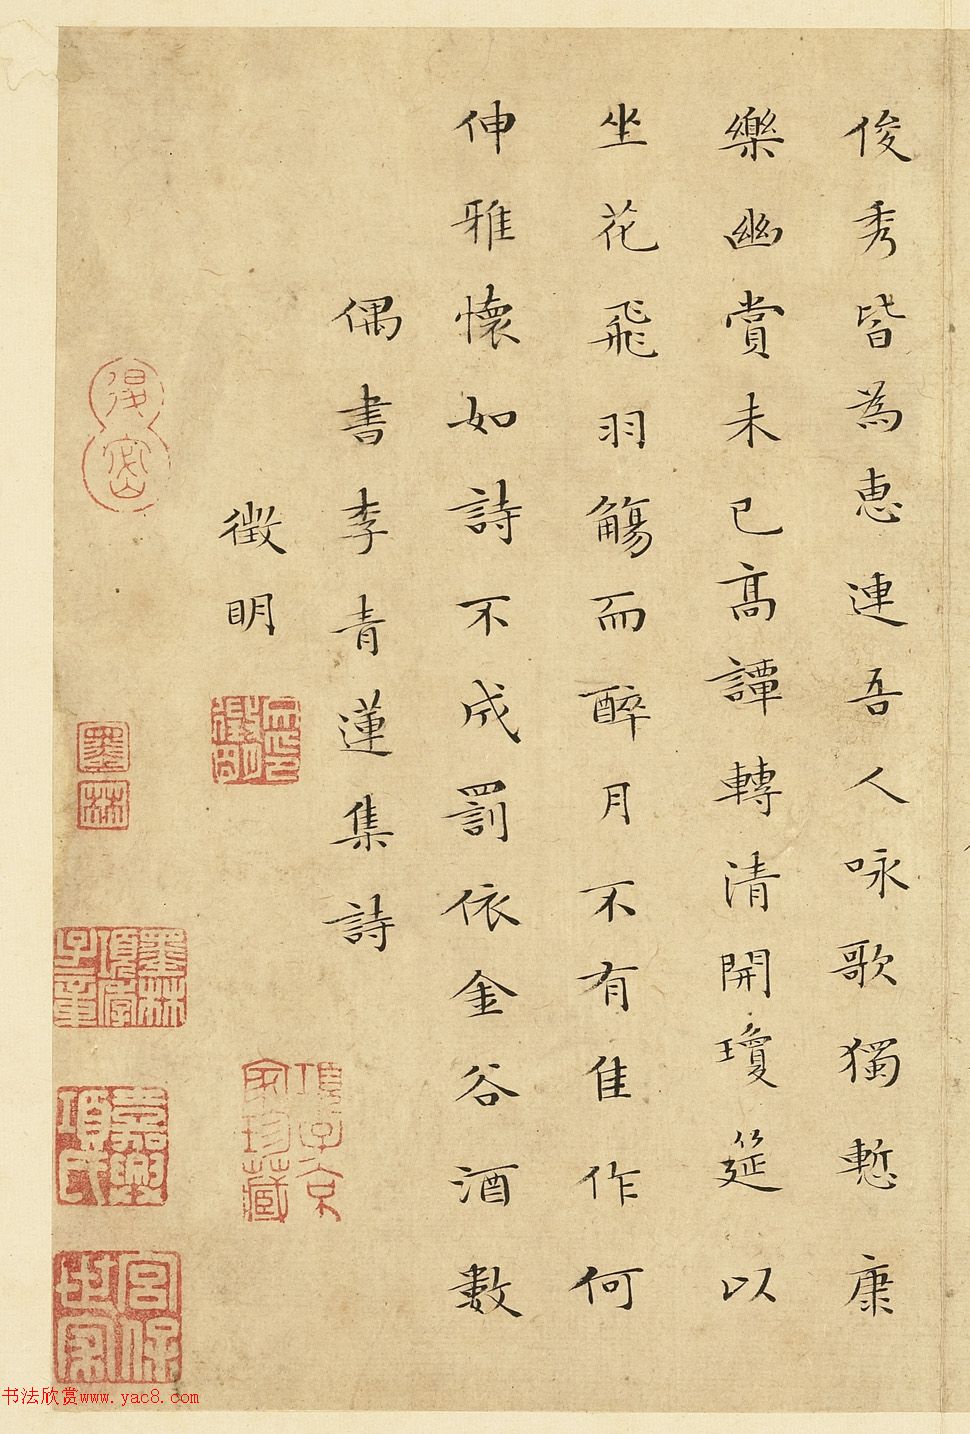 俊秀皆為惠連吾人咏歌獨慙康
樂幽賞未已高譚轉清開瓊筵以
坐花飛羽觴而醉月不有隹作何
伸雅懷如詩不成罰依金谷酒數
偶書李青蓮集詩
徵明
墨林
項子京家珍藏
嘉興項氏
宮保世家
书法欣赏www.yac8.com